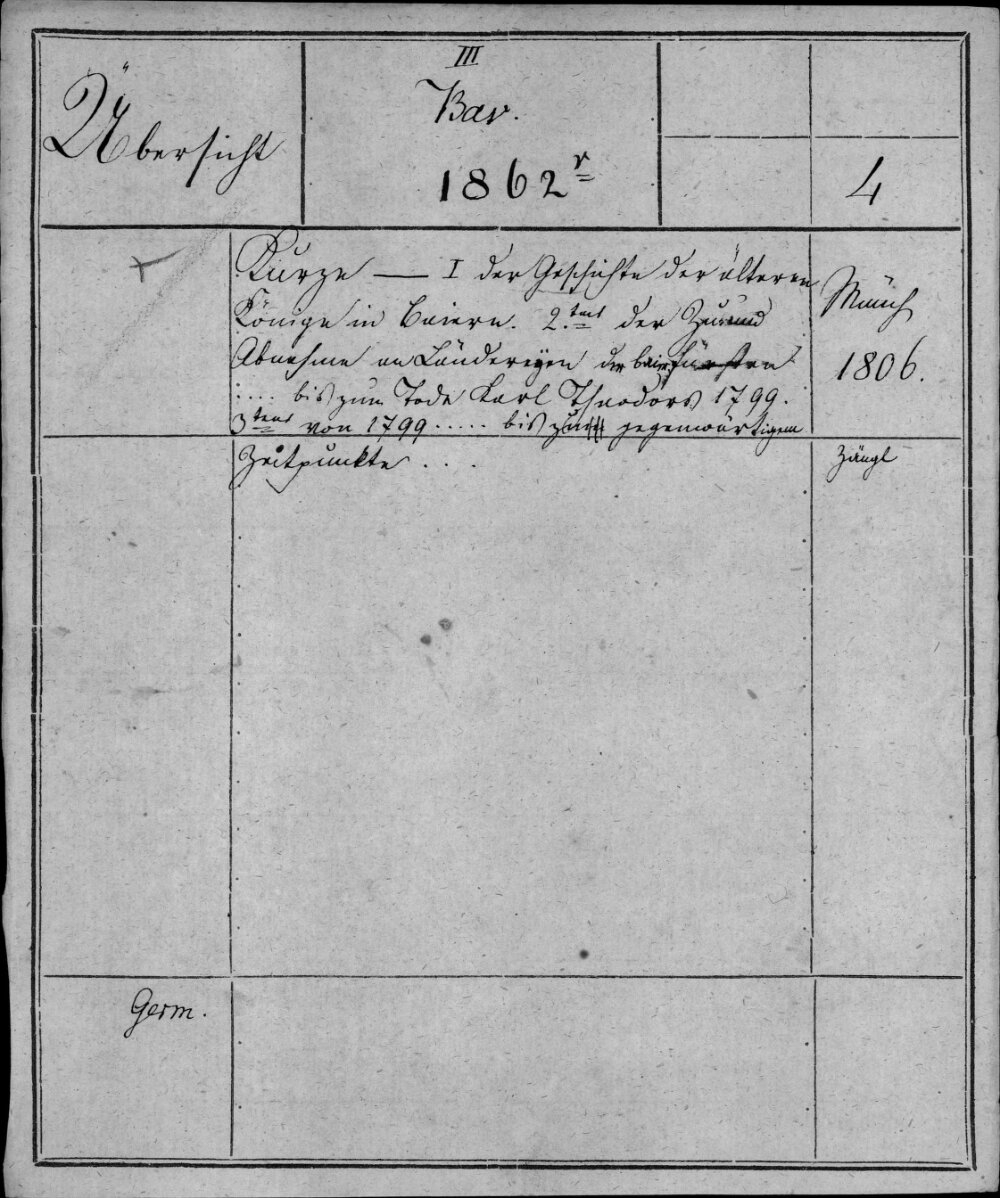 Übersicht
III
Bav.
1862 r
4
Kurze — I der Geschichte der älteren
Könige in Baiern. 2.tens der Zu und
Abnahme an Ländereyen der bair. Fürsten
.... bis zum Tode Karl Theodors 1799.
3tens von 1799 ..... bis zum gegenwärtigem
Zeitpunkte ....
Münch
1806.
Zängl
Germ.